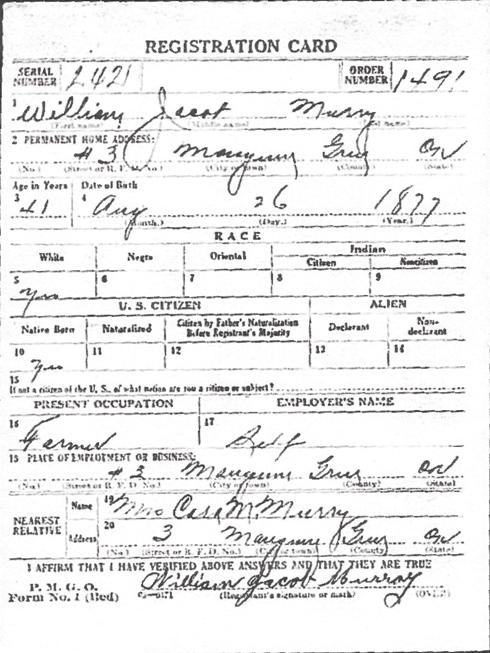 REGISTRATION CARD
SERIAL NUMBER 2421 ORDER NUMBER 1491
1 William Jacob Murry
(First name) (Middle name) (Last name)
2 PERMANENT HOME ADDRESS:
#3 Mangum Greer
(No.) (Street or R. F. D. No.) (City or town) (County) (State)
Age in Years Date of Birth
3 41 4 Aug 26 1877
(Month.) (Day.) (Year.)
RACE
White Negro Oriental Indian
Citizen Noncitizen
5 Yes 6 7 8 9
U. S. CITIZEN ALIEN
Native Born Naturalized Citizen by Father's Naturalization Before Registrant's Majority Declarant Non-declarant
10 Yes 11 12 13 14
15
If not a citizen of the U. S., of what nation are you a citizen or subject?
PRESENT OCCUPATION EMPLOYER'S NAME
16 Farmer 17 Self
18 PLACE OF EMPLOYMENT OR BUSINESS:
#3 Mangum Greer
(No.) (Street or R. F. D. No.) (City or town) (County) (State)
NEAREST RELATIVE Name 19 Mrs M. Murry
Address 20 3 Mangum Greer
(No.) (Street or R. F. D. No.) (City or town) (County) (State)
I AFFIRM THAT I HAVE VERIFIED ABOVE ANSWERS AND THAT THEY ARE TRUE
P. M. G. O.
Form No. 1 (Red) William Jacob Murray
(Registrant's signature or mark) (OVER)